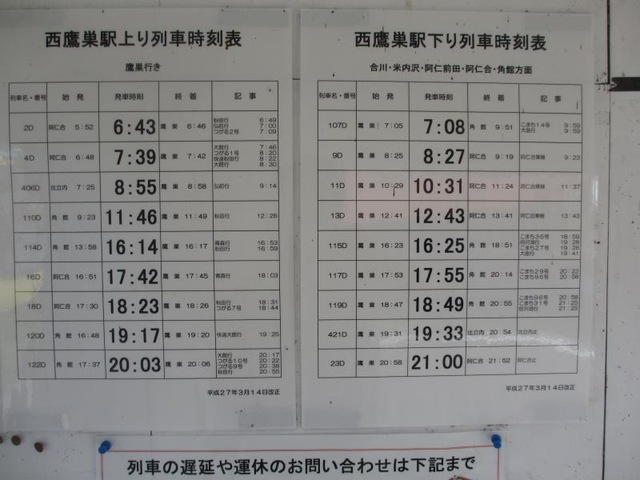 西鷹巣駅上り列車時刻表
鷹巣行き
列車名・番号 始発 発車時刻 終着 記事
2D 阿仁合 5:52 6:43 鷹巣 6:46 秋田行 6:49
弘前行 7:00
つがる2号 7:09
4D 阿仁合 6:48 7:39 鷹巣 7:42 大館行 7:46
つがる1号 8:20
快速秋田行 8:22
8:30
406D 比立内 7:25 8:55 鷹巣 8:58 弘前行 9:14
110D 角館 9:23 11:46 鷹巣 11:49 秋田行 12:26
114D 角館 13:58 16:14 鷹巣 16:17 青森行 16:53
秋田行 16:59
16D 阿仁合 16:51 17:42 鷹巣 17:45 青森行 18:03
18D 阿仁合 17:30 18:23 鷹巣 18:26 秋田行 18:31
つがる7号 18:44
120D 角館 16:48 19:17 鷹巣 19:20 快速大館行 19:25
122D 角館 17:37 20:03 鷹巣 20:06 大館行 20:17
つがる10号 20:22
つがる9号 20:38
秋田行 20:55
平成27年3月14日改正
西鷹巣駅下り列車時刻表
合川・米内沢・阿仁前田・阿仁合・角館方面
列車名・番号 始発 発車時刻 終着 記事
107D 鷹巣 7:05 7:08 角館 9:51 こまち14号 9:59
大曲行 9:59
9D 鷹巣 8:25 8:27 阿仁合 9:19 阿仁合乗継 9:23
11D 鷹巣 10:29 10:31 阿仁合 11:24 阿仁合乗継 11:37
13D 鷹巣 12:41 12:43 阿仁合 13:41 阿仁合乗継 13:43
115D 鷹巣 16:23 16:25 角館 18:51 こまち36号 18:59
田沢湖行 19:28
こまち27号 19:26
大曲行 19:41
117D 鷹巣 17:53 17:55 角館 20:14 こまち29号 20:22
こまち96号 20:58
119D 鷹巣 18:47 18:49 角館 20:55 こまち96号 20:58
こまち31号 21:23
田沢湖行 21:25
421D 鷹巣 19:31 19:33 比立内 20:54 比立内止
23D 鷹巣 20:58 21:00 阿仁合 21:52 阿仁合止
平成27年3月14日改正
列車の遅延や運休のお問い合わせは下記まで